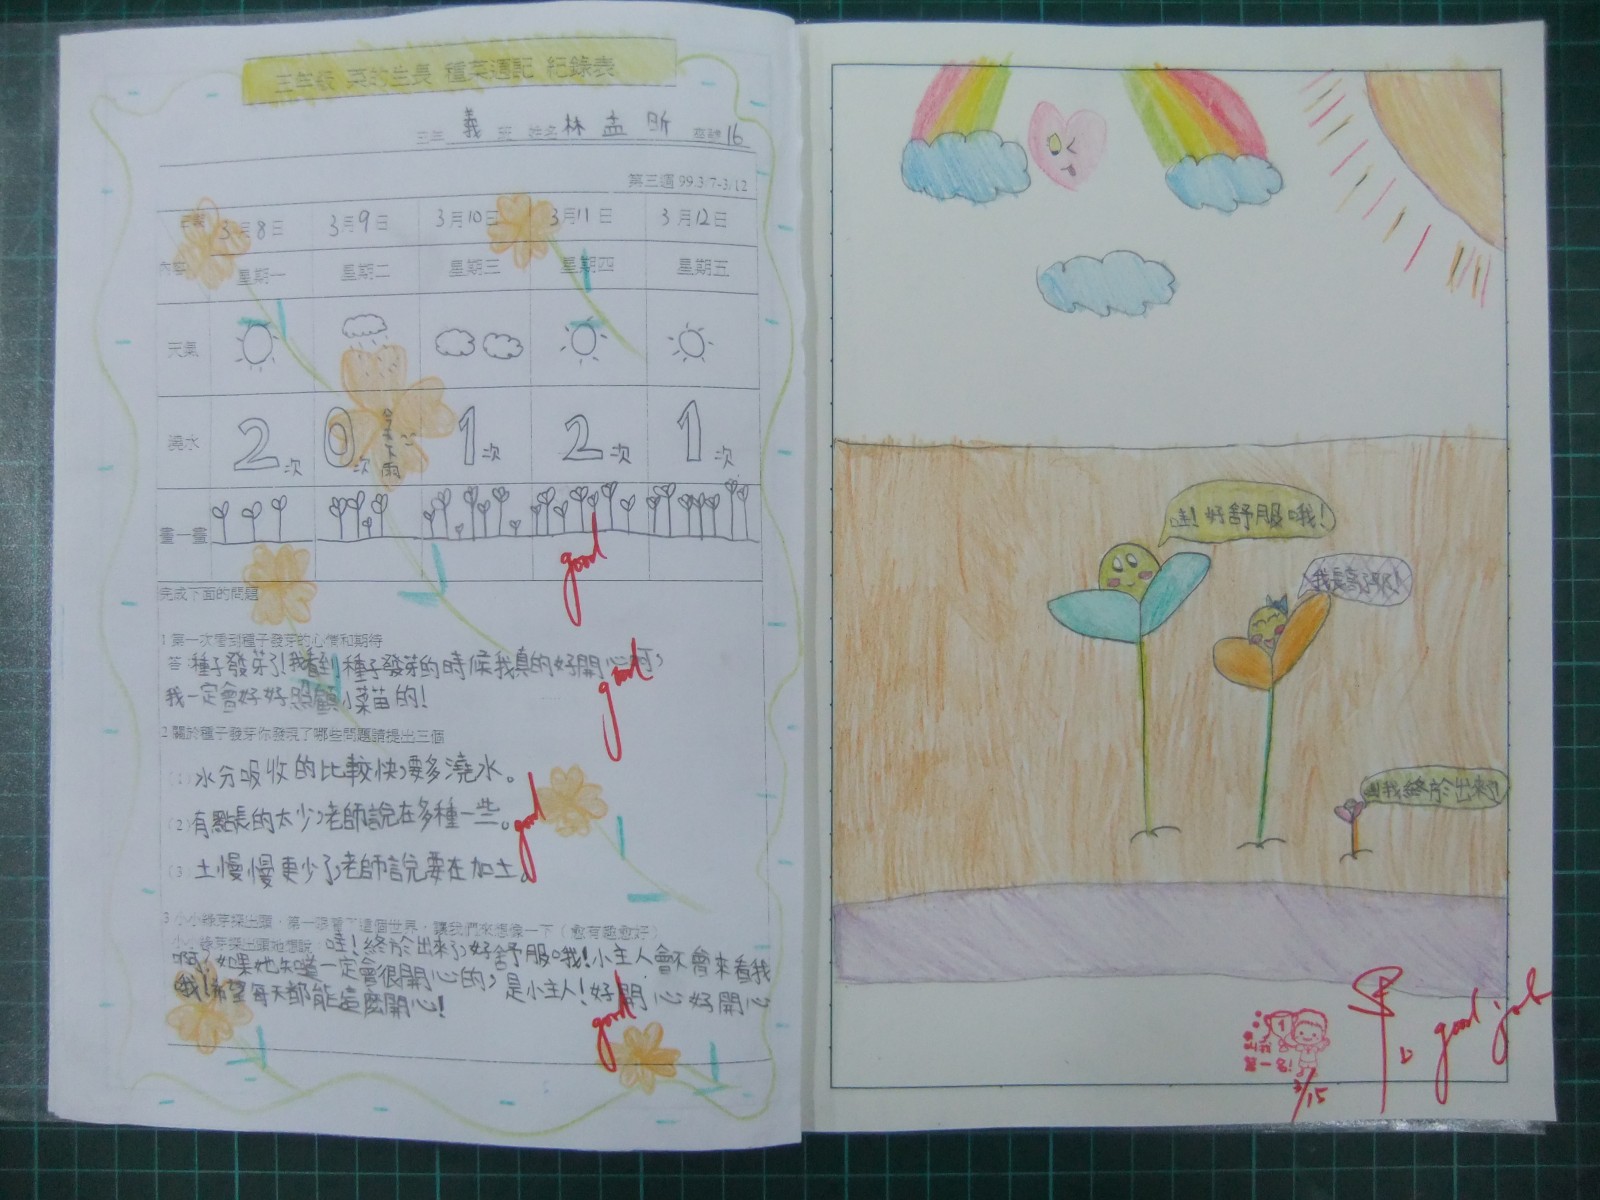 三年級 菜的生長 種菜週記 紀錄表
三年 義 班 姓名 林孟昕 座號 16
第三週 99.3/7-3/12
3月8日 3月9日 3月10日 3月11日 3月12日
內容 星期一 星期二 星期三 星期四 星期五
天氣
澆水 2次 0次 今天下雨 1次 2次 1次
畫一畫
good
完成下面的問題
1 第一次看到種子發芽的心情和期待
答:種子發芽了!我看到種子發芽的時候我真的好開心啊,
我一定會好好照顧小菜苗的!
good
2 關於種子發芽你發現了哪些問題請提出三個
(1)水分吸收的比較快,要多澆水。
(2)有點長的太少,老師說在多種一些。
good
(3)土慢慢更少了,老師說要在加土。
3 小小綠芽探出頭,第一眼看了這個世界,讓我們來想像一下(愈有趣愈好)
小小綠芽探出頭她想說:哇!終於出來了,好舒服哦!小主人會不會來看我
啊?如果她知道一定會很開心的,是小主人!好開心好開心
哦!希望每天都能這麼開心!
good
哇!好舒服哦!
我長高了耶!
我終於出來了
第一名!
3/15
good job